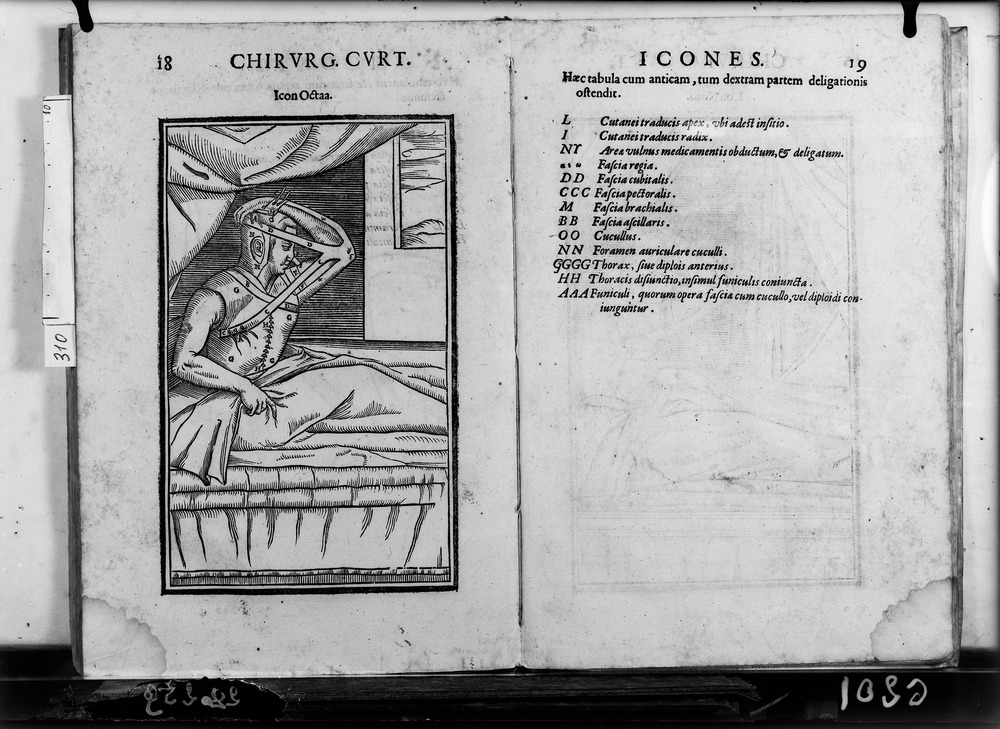 18
CHIRVRG. CVRT.
Icon Octaa.
ICONES.
19
Hæc tabula cum anticam, tum dextram partem deligationis
ostendit.
L Cutanei traducis apex, vbi adest insitio.
I Cutanei traducis radix.
NY Area vulnus medicamentis obductum, & deligatum.
Fascia regia.
DD Fascia cubitalis.
CCC Fascia pectoralis.
M Fascia brachialis.
BB Fascia ascillaris.
OO Cucullus.
NN Foramen auriculare cuculli.
GGGG Thorax, siue diplois anterius.
HH Thoracis disiunctio, insimul funiculis coniuncta.
AAA Funiculi, quorum opera fascia cum cucullo, vel diploidi con-
iunguntur.
310